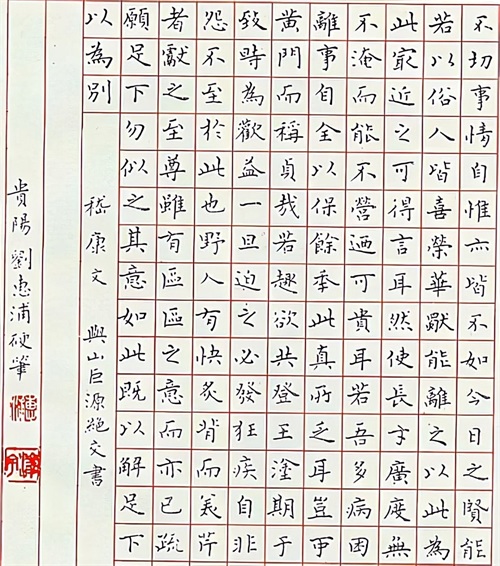 不切事情自惟亦皆不如今日之賢能
若以俗人皆喜榮華獨能離之以此為
此最近之可得言耳然使長才廣度無
不淹而能不營迺可貴耳若吾多病困
離事自全以保餘年此真所乏耳豈可
黄門而稱貞哉若趣欲共登王塗期于
致時為歡益一旦迫之必發狂疾自非
怨不至於此也野人有快炙背而美芹
者獻之至尊雖有區區之意而亦已疏
願足下勿似之其意如此既以解足下
以為別
嵇康文 與山巨源絕交書
貴陽劉惠浦硬筆